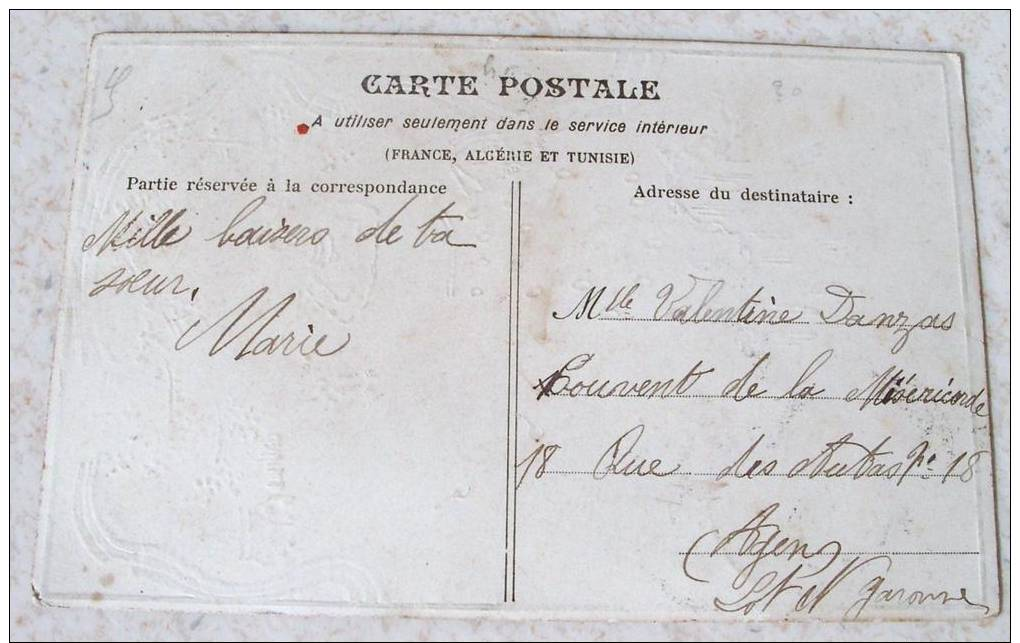 CARTE POSTALE
A utiliser seulement dans le service intérieur
(FRANCE, ALGÉRIE ET TUNISIE)
Partie réservée à la correspondance
Mille baisers de ta
soeur.
Marie
Adresse du destinataire :
Mlle Valentine Danzas
Couvent de la Miséricorde
18 Rue des No 18
Agen
Lot et Garonne